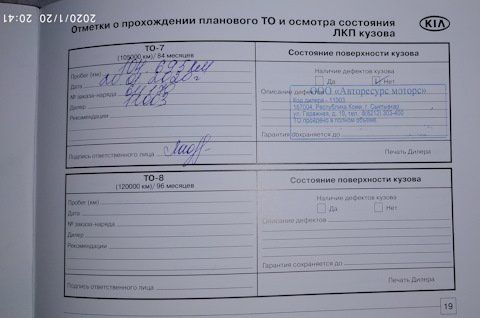 20:41
2020/1/20
Отметки о прохождении планового ТО и осмотра состояния
ЛКП кузова
KIA
ТО-7
(105000 км)/ 84 месяцев
Пробег (км)
Дата 20.01.2020г
№ заказа-наряда
Дилер 11003
Рекомендации
Подпись ответственного лица
Состояние поверхности кузова
Наличие дефектов кузова
Да Нет
Описание дефектов
ООО «Авторесурс моторс»
Код дилера - 11003
167004, Республика Коми, г. Сыктывкар,
ул. Гаражная, д. 19, тел. 8(8212) 303-400
ТО пройдено в полном объеме
Гарантия сохраняется до
Печать Дилера
ТО-8
(120000 км)/ 96 месяцев
Пробег (км)
Дата
№ заказа-наряда
Дилер
Рекомендации
Подпись ответственного лица
Состояние поверхности кузова
Наличие дефектов кузова
Да Нет
Описание дефектов
Гарантия сохраняется до
Печать Дилера
19